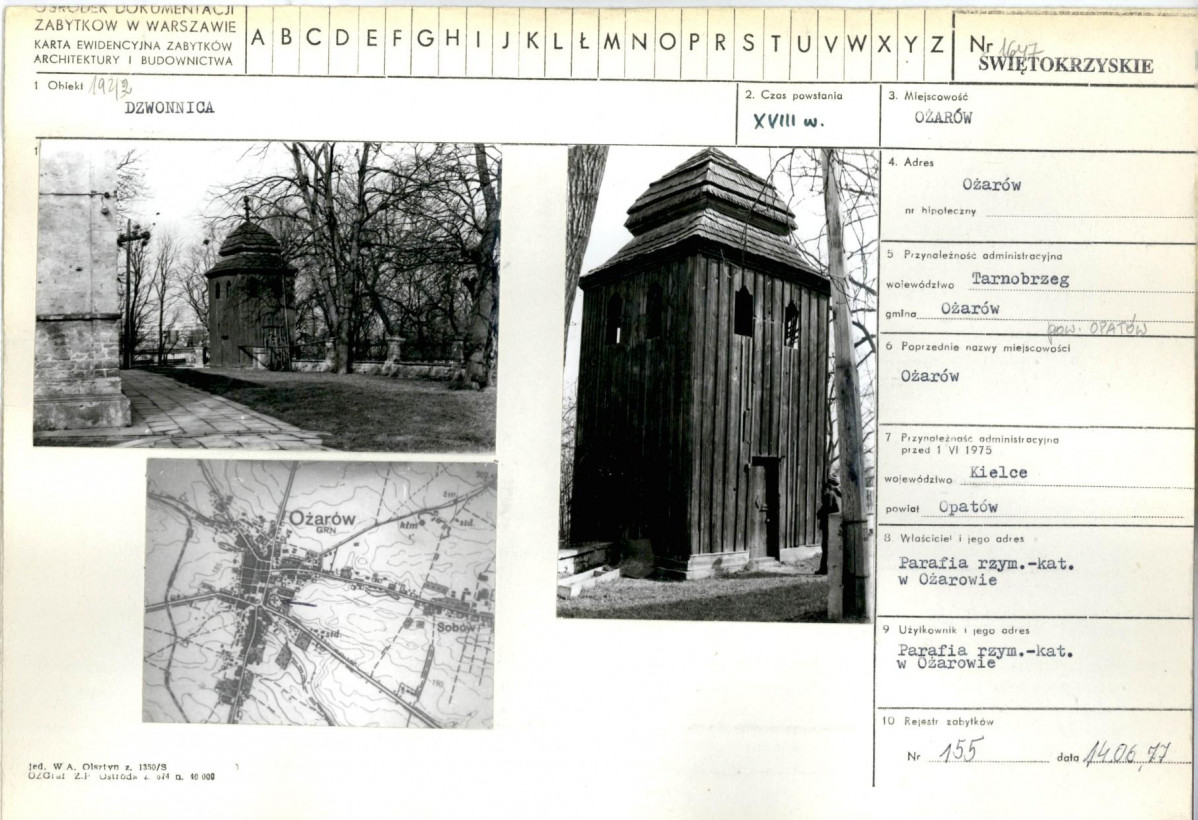 OŚRODEK DOKUMENTACJI
ZABYTKÓW W WARSZAWIE
KARTA EWIDENCYJNA ZABYTKÓW
ARCHITEKTURY I BUDOWNICTWA
A B C D E F G H I J K L Ł M N O P R S T U V W X Y Z
Nr 1647
ŚWIĘTOKRZYSKIE
1 Obiekt
DZWONNICA
2. Czas powstania
XVIII w.
3. Miejscowość
OŻARÓW
4. Adres
Ożarów
nr hipoteczny
5 Przynależność administracyjna
województwo Tarnobrzeg
gmina Ożarów
pow. OPATÓW
6 Poprzednie nazwy miejscowości
Ożarów
7 Przynależność administracyjna
przed 1 VI 1975
województwo Kielce
powiat Opatów
8. Właściciel i jego adres
Parafia rzym.-kat.
w Ożarowie
9 Użytkownik i jego adres
Parafia rzym.-kat.
w Ożarowie
10 Rejestr zabytków
Nr 155 data 14.06.77
Ożarów
GRN
kłm
std.
Sobów
std.
190
Jed. W.A. Olsztyn z. 1350/S
OZGraf. Z.P. Ostróda z. 674 n. 40 000